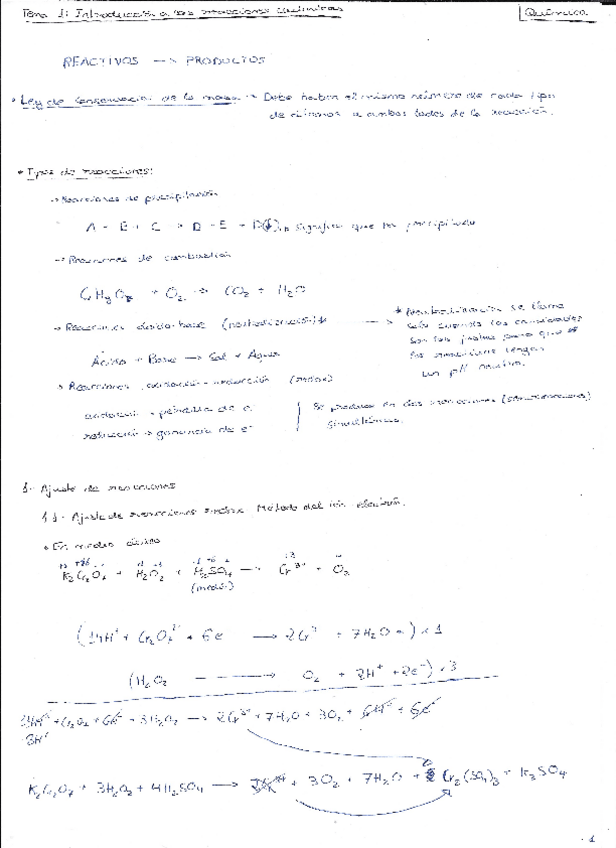 Tema 1: Introducción a las reacciones químicas
Química
REACTIVOS → PRODUCTOS
* Ley de conservación de la masa → Debe haber el mismo número de cada tipo
de átomos a ambos lados de la reacción.
* Tipos de reacciones:
→ Reacciones de precipitación
A + B + C → D + E + significa que ha precipitado
→ Reacciones de combustión
CxHyOz + O2 → CO2 + H2O
→ Reacciones ácido-base (neutralización)*
* Neutralización se llama
solo cuando las cantidades
son las justas para que
las reacciones tengan
un pH neutro.
Ácido + Base → Sal + Agua
→ Reacciones oxidación - reducción (redox)
oxidación → pérdida de e-
reducción → ganancia de e-
Se produce en dos reacciones
simultáneas.
1- Ajuste de reacciones
1.1- Ajuste de reacciones redox. Método del ión electrón.
* En medio ácido
K2Cr2O7 + H2O2 + H2SO4 → Cr3+ + O2
(medio)
(14H+ + Cr2O7 2- + 6e → 2Cr3+ + 7H2O) x 1
(H2O2 → O2 + 2H+ + 2e-) x 3
14H+ + Cr2O7 + 6e- + 3H2O2 → 2Cr3+ + 7H2O + 3O2 + 6H+ + 6e-
8H+
K2Cr2O7 + 3H2O2 + 4H2SO4 → + 3O2 + 7H2O + Cr2(SO4)3 + K2SO4
1